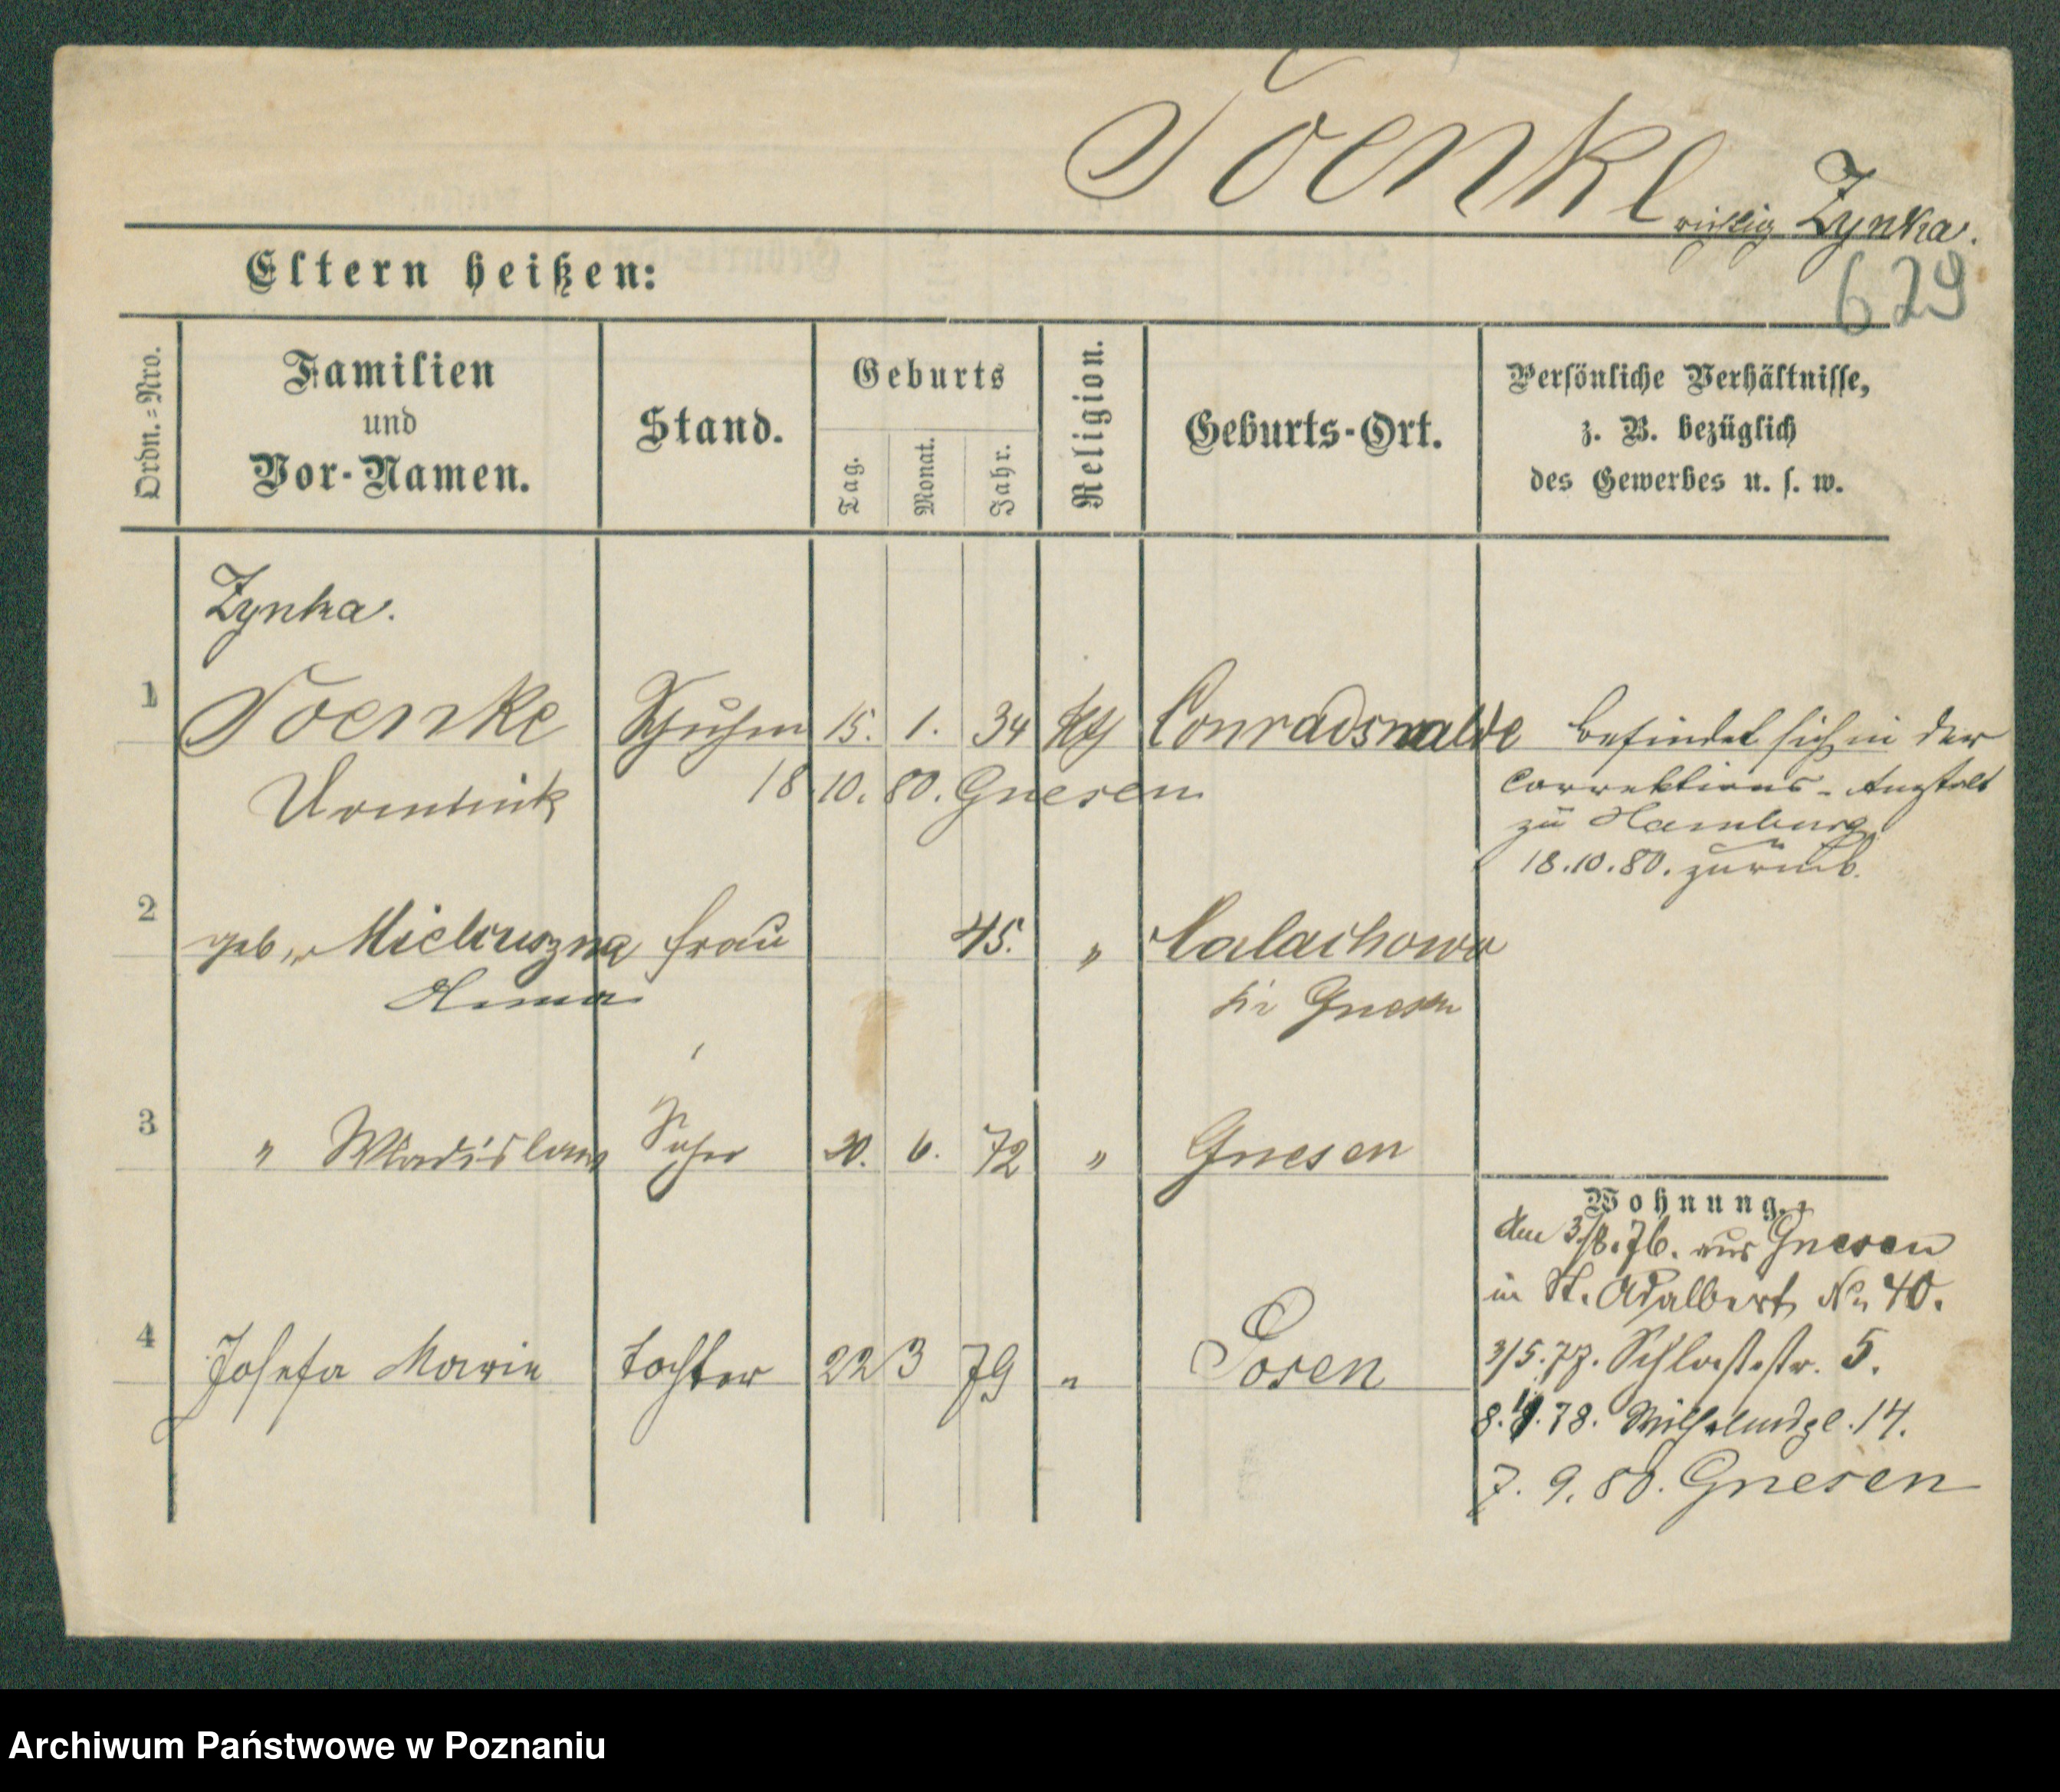 Toenke richtig Zynka.
629
Eltern heißen:
Ordn.-Nro.
Familien
und
Vor-Namen.
Stand.
Geburts
Tag.
Monat.
Jahr.
Religion.
Geburts-Ort.
Persönliche Verhältnisse,
z. B. bezüglich
des Gewerbes u. s. w.
Zynka.
1 Toenke Schuhm 15. 1. 34 kth Conradswalde befindet sich in der
Dominik 18.10.80. Gnesen Correktions-Anstalt
zu
18.10.80. zurück.
2 geb. Frau 45. " Malachowo
Anna Kr Gnesen
3 " Wladislaus Sohn 20. 6. 72 " Gnesen
Wohnung.
den 3/8.76. aus Gnesen
in St. Adalbert No 40.
4 Josefa Marie Tochter 22 3 79 " Posen
3/5.77. Schlossstr. 5.
78. Wilhelmspl. 14.
7. 9. 80. Gnesen
Archiwum Państwowe w Poznaniu